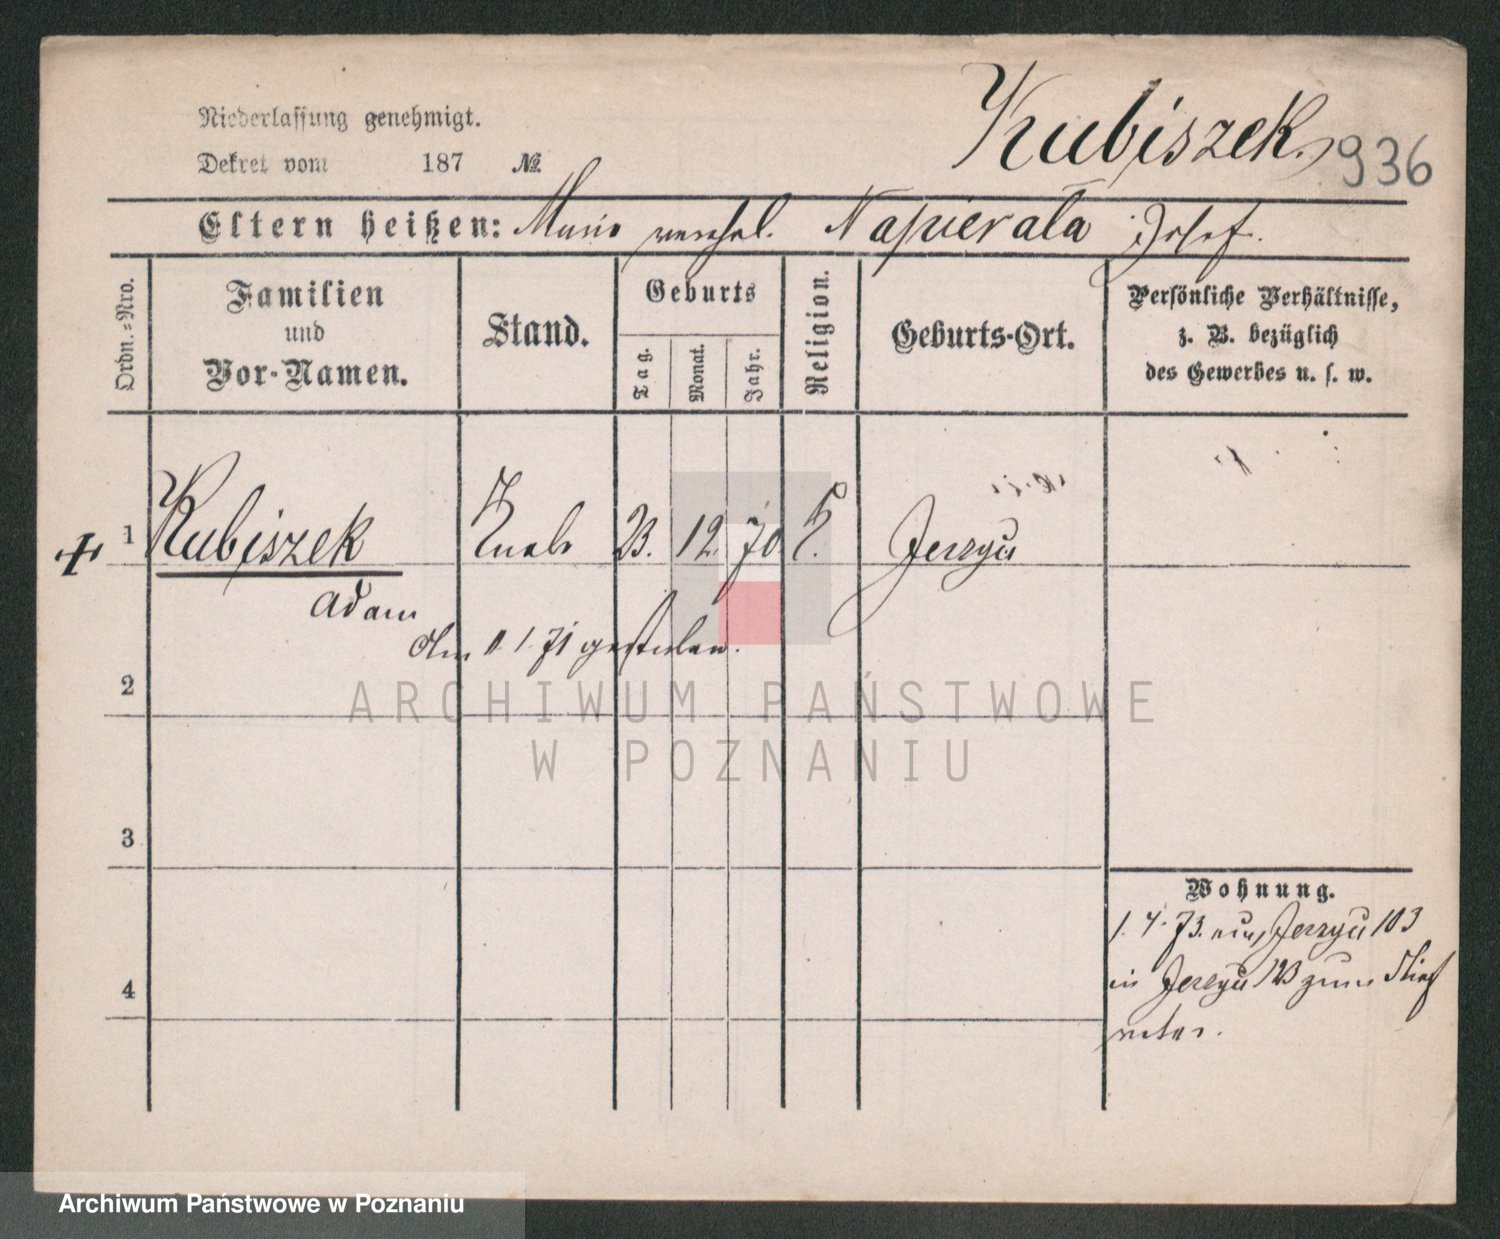 Niederlassung genehmigt.
Dekret vom 187 №
Kubiszek.
936
Eltern heißen: Marie verehel. Napierała Josef.
Ordn.-Nro.
Familien
und
Vor-Namen.
Stand.
Geburts
Tag.
Monat.
Jahr.
Religion.
Geburts-Ort.
Persönliche Verhältnisse,
z. B. bezüglich
des Gewerbes u. s. w.
1 Kubiszek Knabe 23. 12. 70 k. Jerzyce
Adam
Am 11. 1. 71 gestorben.
2
3
4
Wohnung.
1. 4. 73. aus Jerzyce 103
in Jerzyce 123 zum Stief
vater.
ARCHIWUM PAŃSTWOWE
W POZNANIU
Archiwum Państwowe w Poznaniu